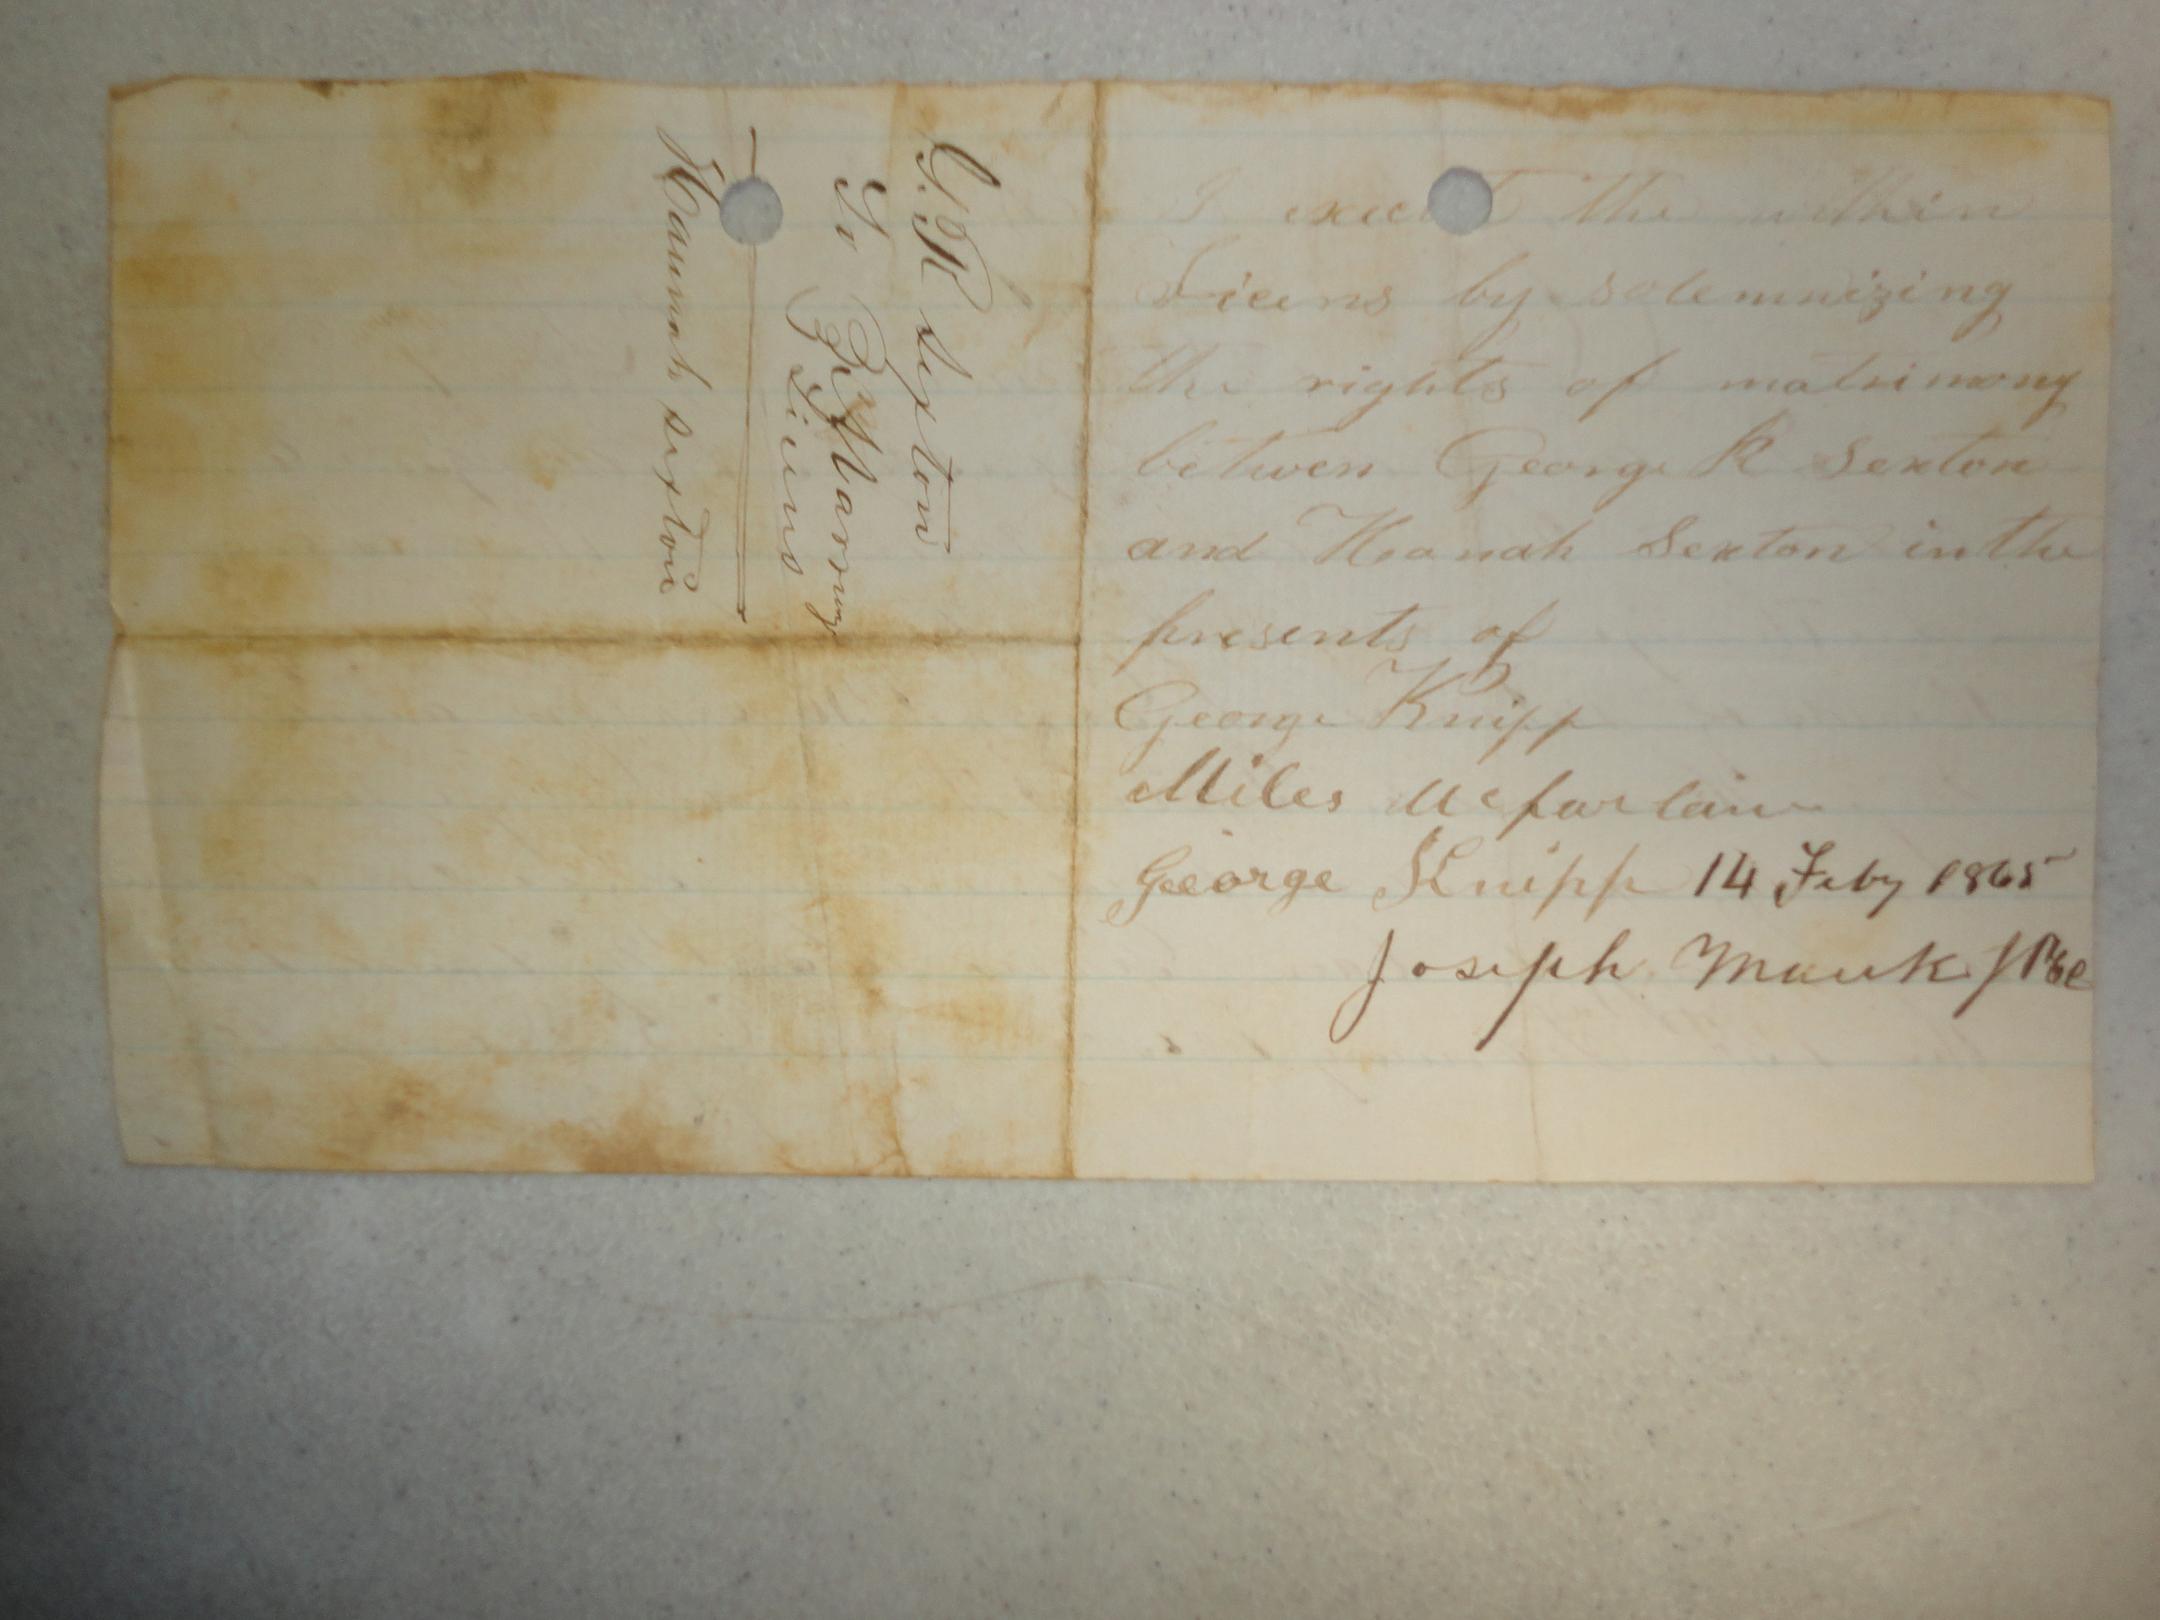 G. K. Sexton
To Marry
Licens
Hannah Sexton
I execut the within
Licens by solemnizing
the rights of matrimony
betwen George K Sexton
and Hanah Sexton in the
presents of
George Knipp
Miles Mcfarlain
George Knipp 14 Feby 1865
Joseph Mauk